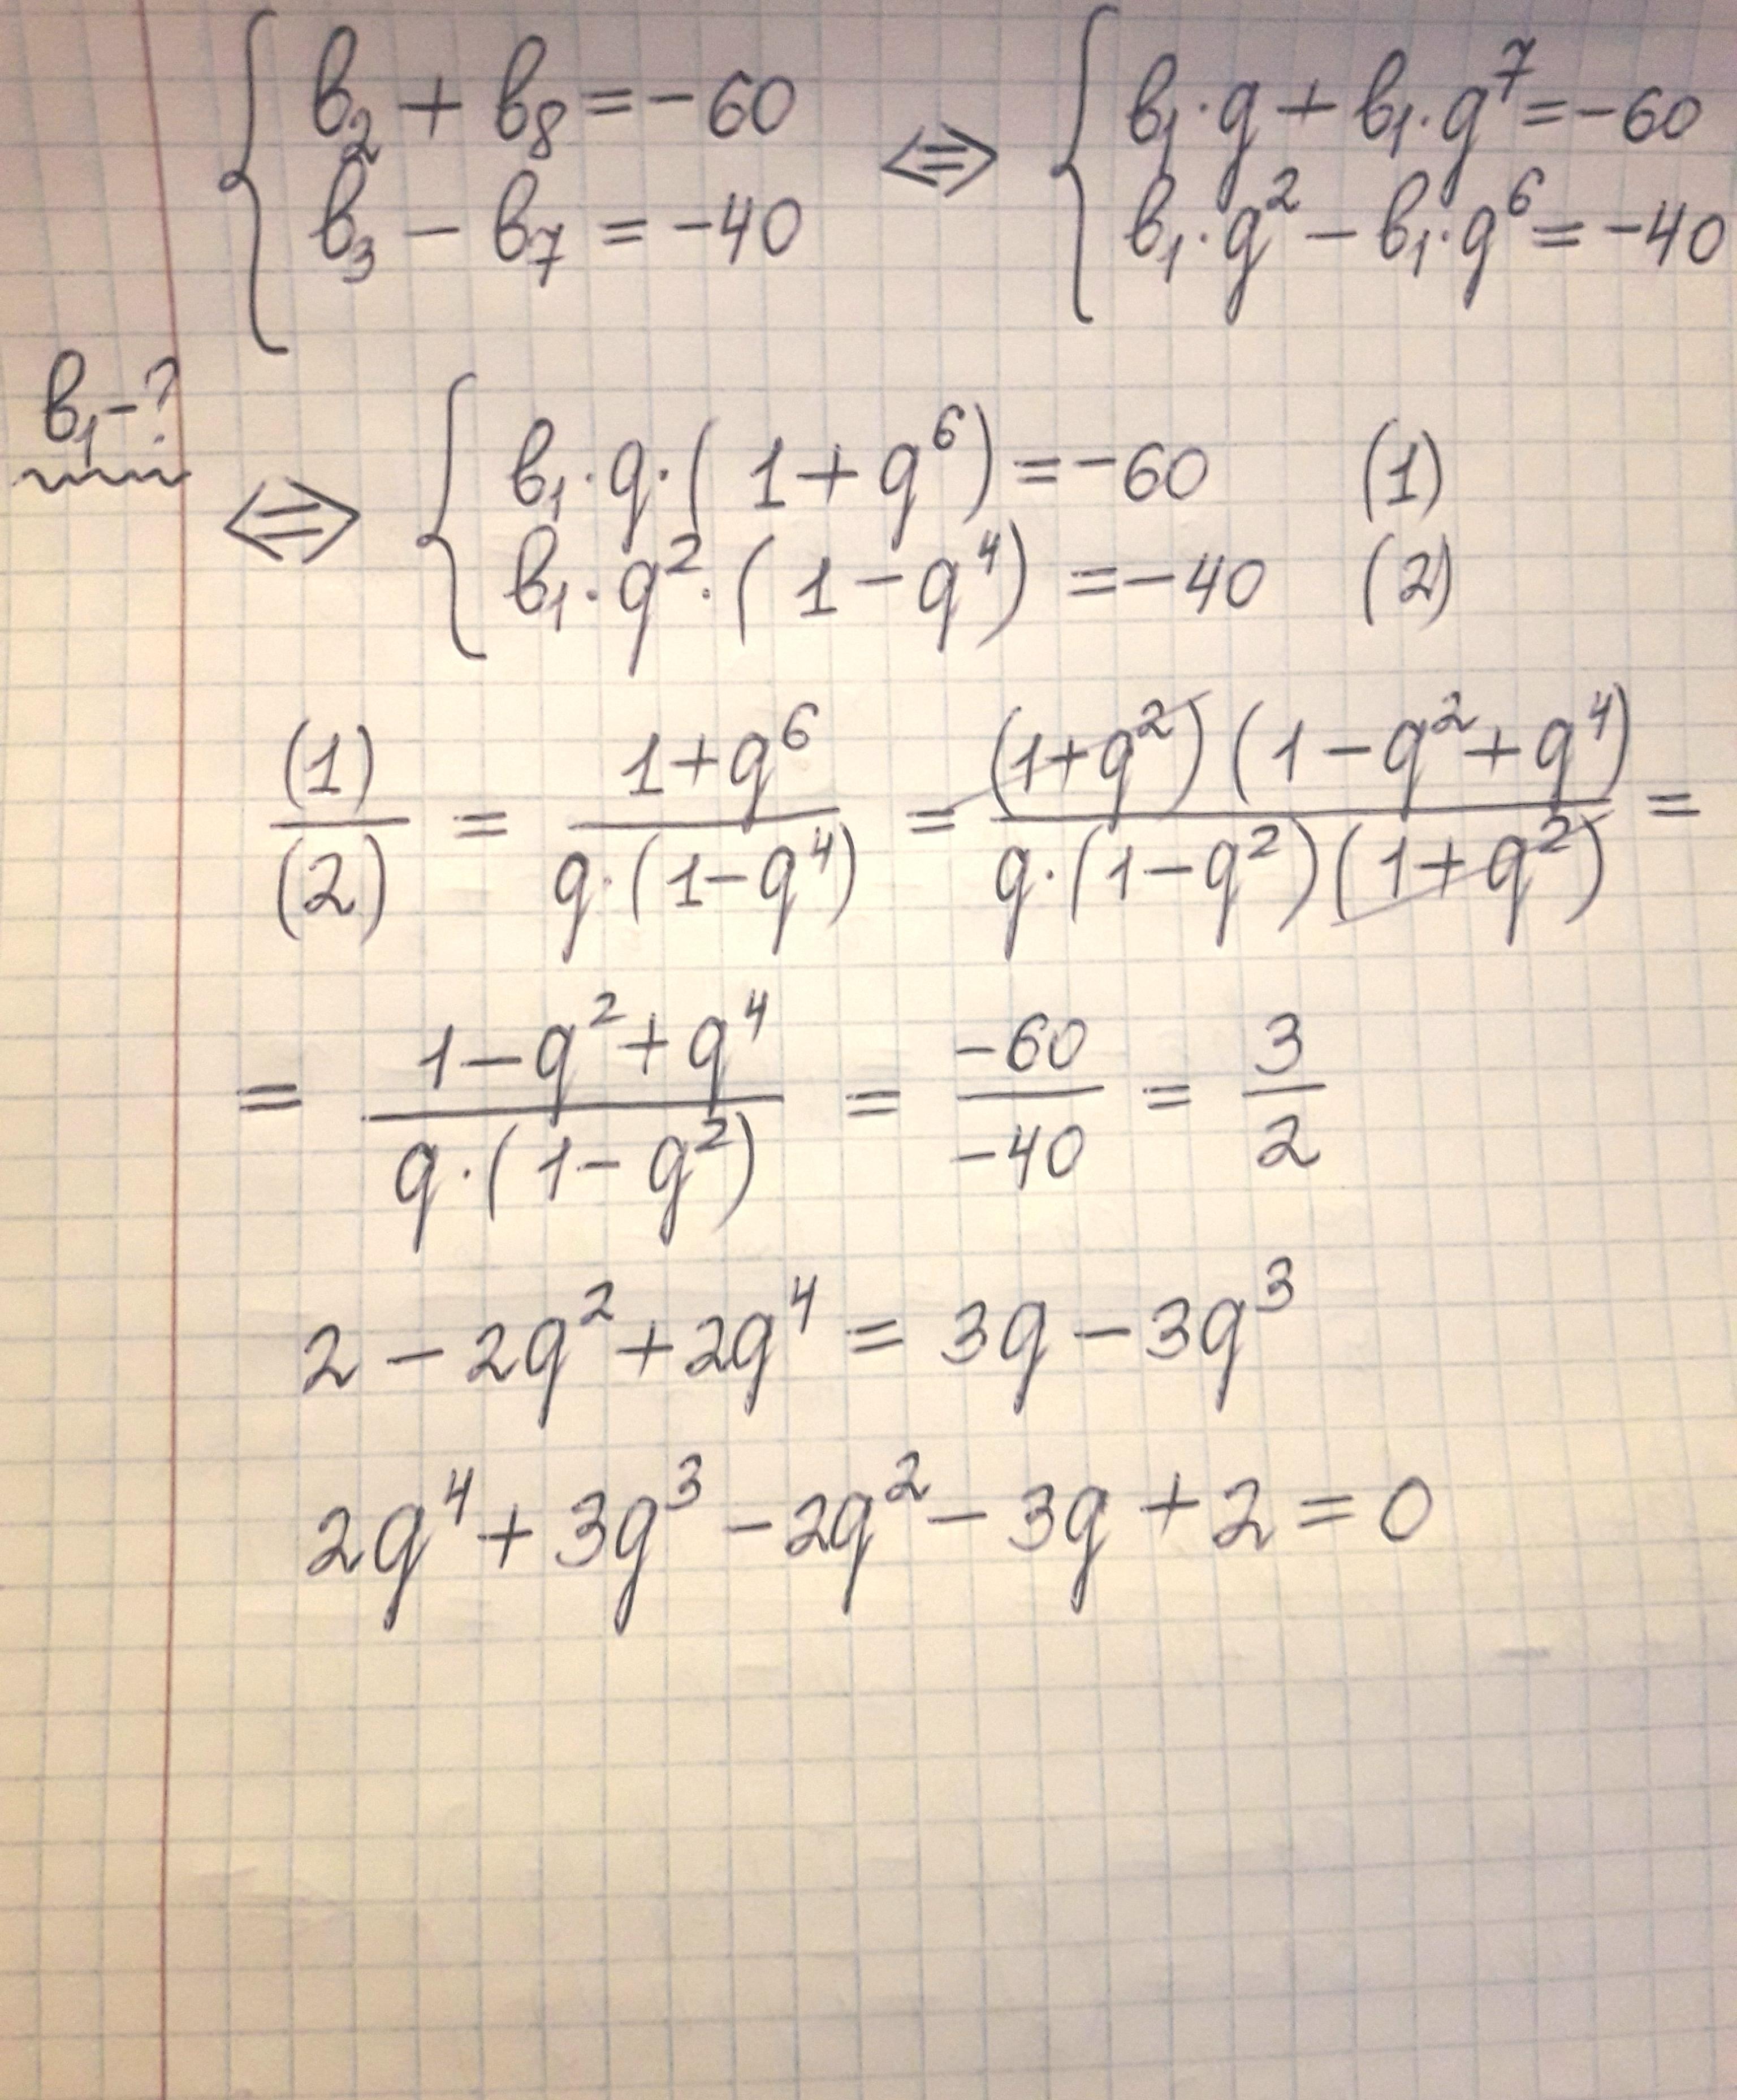 в₂ + в₈ = -60 <=> в₁·q + в₁·q⁷ = -60
в₃ - в₇ = -40 в₁·q² - в₁·q⁶ = -40
в₁ - ?
<=> в₁·q·(1+q⁶) = -60 (1)
в₁·q²·(1-q⁴) = -40 (2)
(1)/(2) = (1+q⁶)/(q·(1-q⁴)) = ((1+q²)(1-q²+q⁴))/(q·(1-q²)(1+q²)) =
= (1-q²+q⁴)/(q·(1-q²)) = -60/-40 = 3/2
2 - 2q² + 2q⁴ = 3q - 3q³
2q⁴ + 3q³ - 2q² - 3q + 2 = 0